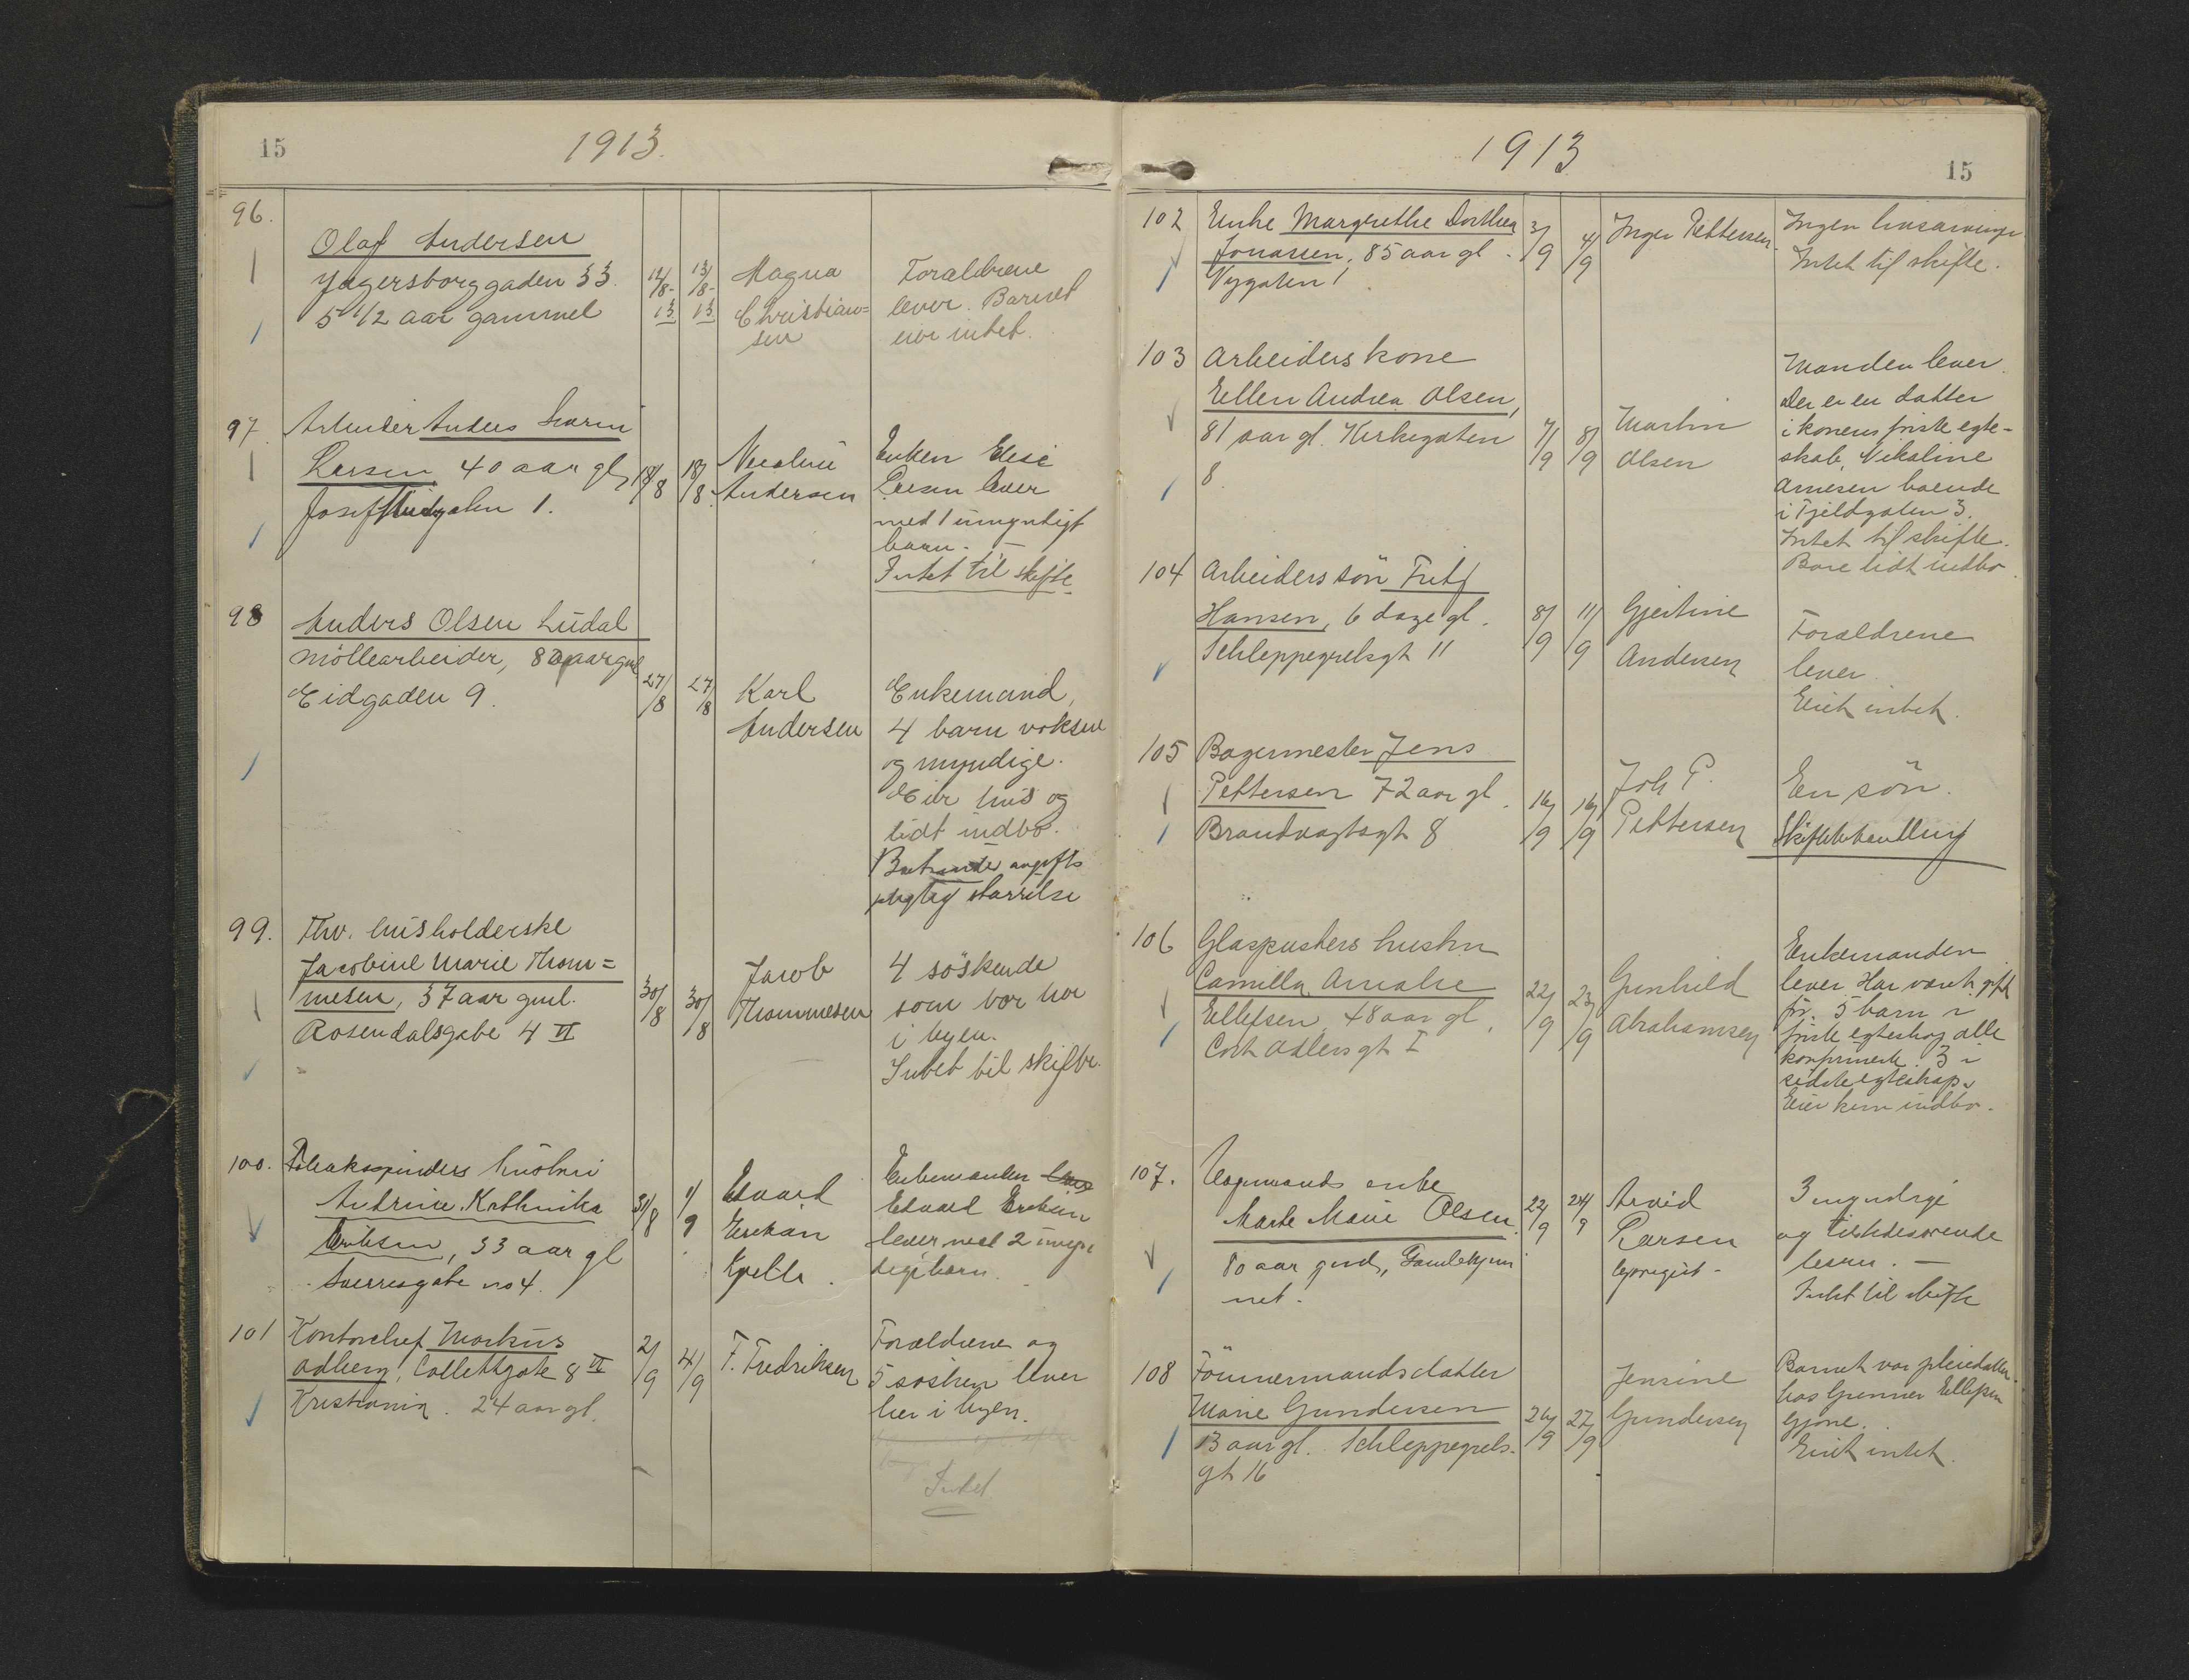 15
1913.
96.
Olaf Andersen
Jegersborggaden 33.
5 1/2 aar gammel
12/8-13
13/8-13
Magna
Christian=
sen
Forældrene
lever. Barnet
eier intet.
97.
Arbeider Anders
Larsen 40 aar gl,
1.
18/8
18/8.
Andersen
Enken Elise
Larsen lever
med 1 umyndigt
barn. —
Intet til skifte
98
Anders Olsen Lüdal
möllearbeider, 80 aar gml
Eidgaden 9.
27/8
27/8
Karl
Andersen
Enkemand,
4 barn voksne
og myndige.
Eier hus og
lidt indbo.
99.
Thv. husholderske
Jacobine Marie Thom=
mesen, 37 aar gml.
Rosendalsgate 4 VI
30/8
30/8
Jacob
Thommesen
4 söskende
som bor her
i byen.
Intet til skifte.
100.
hustru
Andrine Kathinka
Eriksen, 33 aar gl
Sverresgate no 4.
31/8
1/9
Edvard
Eriksen
Enkemanden
Edvard Eriksen
lever med 2 umyn
dige barn.
101
Kontorchef Markus
Ødberg, Collettgate 8 VI
Kristiania. 24 aar gl.
2/9
4/9
F. Fredriksen
Forældrene og
5 søsken lever
her i byen.
Intet.
1913
15
102
Enke Margrethe Dorthea
Jonassen, 85 aar gl.
Nygaten 1
3/9
4/9
Inger Pettersen.
Ingen livsarvinger
Intet til skifte.
103
Arbeiders kone
Ellen Andrea Olsen,
81 aar gl. Kirkegaten
8.
7/9
8/9
Martin
Olsen
Manden lever.
Der er en datter
i konens første egte-
skab, Nikoline
Arnesen boende
i Fjeldgaten 3.
Intet til skifte.
Bare lidt indbo.
104
Arbeiders sön
Hansen, 6 dage gl.
Schleppegrelsgt 11
8/9
11/9
Gjertine
Andersen
Forældrene
lever.
Eiet intet.
105
Bagermester Jens
Pettersen 72 aar gl.
Brandvagtsgt 8
16/9
16/9
Joh P.
Pettersen
En sön.
Skiftebehandling
106
Glaspusters hustru
Camilla Amalie
Ellefsen, 48 aar gl,
Cort Adlersgt I
22/9
23/9
Gunhild
Abrahamsen
Enkemanden
lever. Har været gift
før. 5 barn i
første egteskap alle
konfirmert. 3 i
sidste egteskap.
Eier kun indbo.
107.
enke
Marte Marie Olsen.
80 aar gml, Gamlehjem
met.
22/9
24/9
Arvid
Larsen
3 myndige
og tilstedeværende
Intet til skifte
108
Tömmermands datter
Marie Gundersen
13 aar gl. Schleppegrels-
gt 16
26/9
27/9
Jensine
Gundersen
Barnet var pleiedatter
hos Ellefsen
Eiet intet.